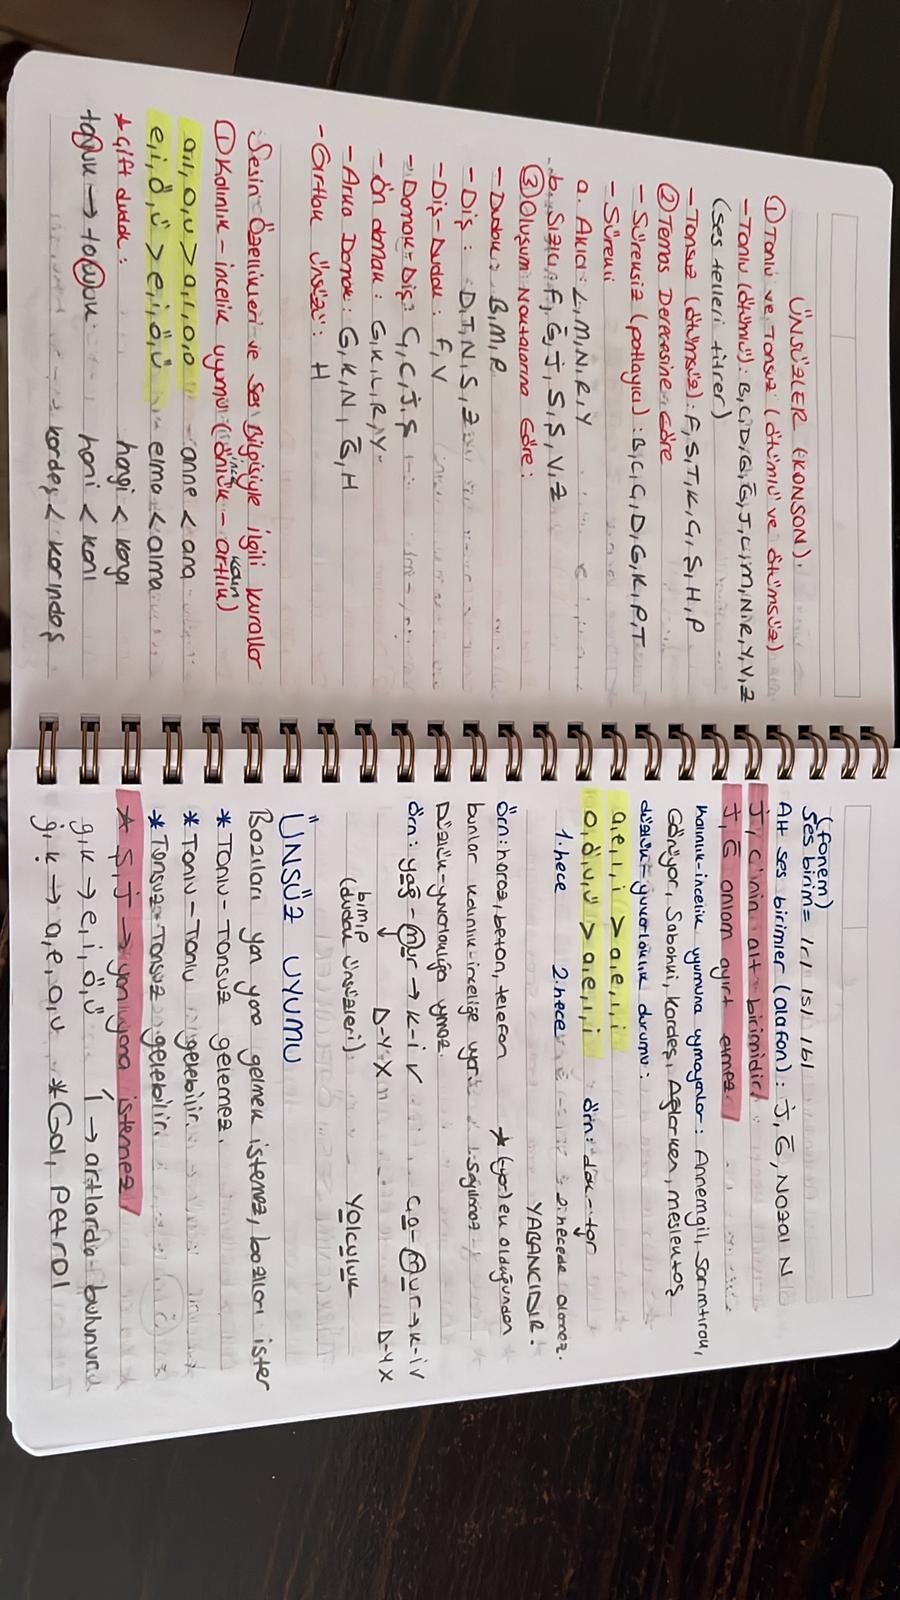 ÜNSÜZLER (KONSON).
① Tonlu ve Tonsuz (ötümlü ve ötümsüz)
- Tonlu (ötümlü): B, C, D, G, Ğ, J, L, M, N, R, Y, V, Z
(ses telleri titrer)
- Tonsuz (ötümsüz): F, S, T, K, Ç, Ş, H, P
② Temas Derecesine Göre
- Süreksiz (patlayıcı): B, C, Ç, D, G, K, P, T
- Sürekli
a. Akıcı: L, M, N, R, Y
b. Sızıcı: F, Ğ, J, S, Ş, V, Z
③ Oluşum Noktalarına Göre:
- Dudak: B, M, P
- Diş: D, T, N, S, Z
- Diş-Dudak: F, V
- Damak-Diş: C, Ç, J, Ş
- Ön damak: G, K, L, R, Y
- Arka Damak: G, K, N, Ğ, H
- Gırtlak Ünsüzü: H
Sesin Özellikleri ve Ses Bilgisiyle ilgili kurallar
① Kalınlık - incelik uyumu (önlük - artlık)
ince kalın
a, ı, o, u > a, ı, o, u anne < ana
e, i, ö, ü > e, i, ö, ü elma < alma
* çift dudak: hangi < kangı
tavuk → tavuk hani < kanı
kardeş < karındaş
(fonem)
Ses birim = |r| |s| |b|
Alt ses birimler (alafon): J, Ğ, Nazal N
J, C'nin alt birimidir.
J, Ğ anlam ayırt etmez.
Kalınlık-incelik uyumuna uymayanlar: Annemgil, Sarımtırak,
Görüyor, Sabahki, Kardeş, Ağlarken, meslektaş
düzlük-yuvarlaklık durumu:
a, e, ı, i > a, e, ı, i
o, ö, u, ü > a, e, ı, i örn:
1.hece 2.hece 2.hecede olamaz.
YABANCIDIR.
örn: horoz, beton, telefon * (-yor) ek olduğundan
bunlar kalınlık-inceliğe uyar. sayılmaz
Düzlük-yuvarlaklığa uymaz.
örn: yağ-mur → K-İ ✓ ça-mur → K-İ ✓
D-Y X D-Y X
b, m, p
(dudak ünsüzleri) Yolculuk
ÜNSÜZ UYUMU
Bazıları yan yana gelmek istemez, bazıları ister
* Tonlu - Tonsuz gelemez.
* Tonlu - Tonlu gelebilir.
* Tonsuz - Tonsuz gelebilir.
* Ş, J → yan yana istemez
g, k → e, i, ö, ü l → artlarda bulunur.
ġ, ḳ → a, e, o, u * Gol, petrol